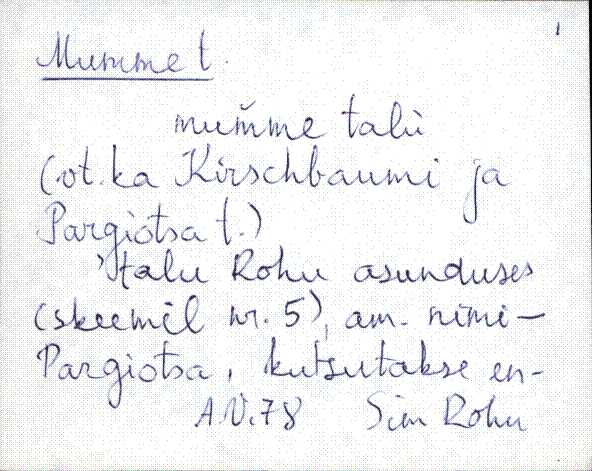 1
Mumme t.
mum̆me talu̇
(ot. ka Kirschbaumi ja
Pargiotsa t.)
talu Rohu asunduses
(skeemil nr. 5), am. nimi –
Pargiotsa, kutsutakse en-
A.V.78 Sim Rohu